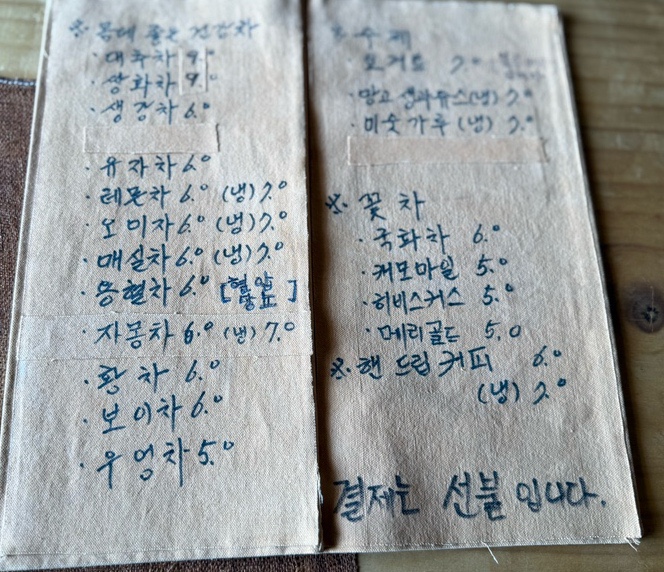 ※ 몸에 좋은 건강차
· 대추차 9.0
· 쌍화차 9.0
· 생강차 6.0
· 유자차 6.0
· 레몬차 6.0 (냉) 7.0
· 오미자 6.0 (냉) 7.0
· 매실차 6.0 (냉) 7.0
· 용혈차 6.0 [혈압 당뇨]
· 자몽차 6.0 (냉) 7.0
· 황차 6.0
· 보이차 6.0
· 우엉차 5.0
※ 수제
요거트 7.0
· 망고 쥬스(냉) 7.0
· 미숫가루 (냉) 7.0
※ 꽃차
· 국화차 6.0
· 캐모마일 5.0
· 히비스커스 5.0
· 메리골드 5.0
※ 핸드립 커피 6.0
(냉) 7.0
결제는 선불 입니다.